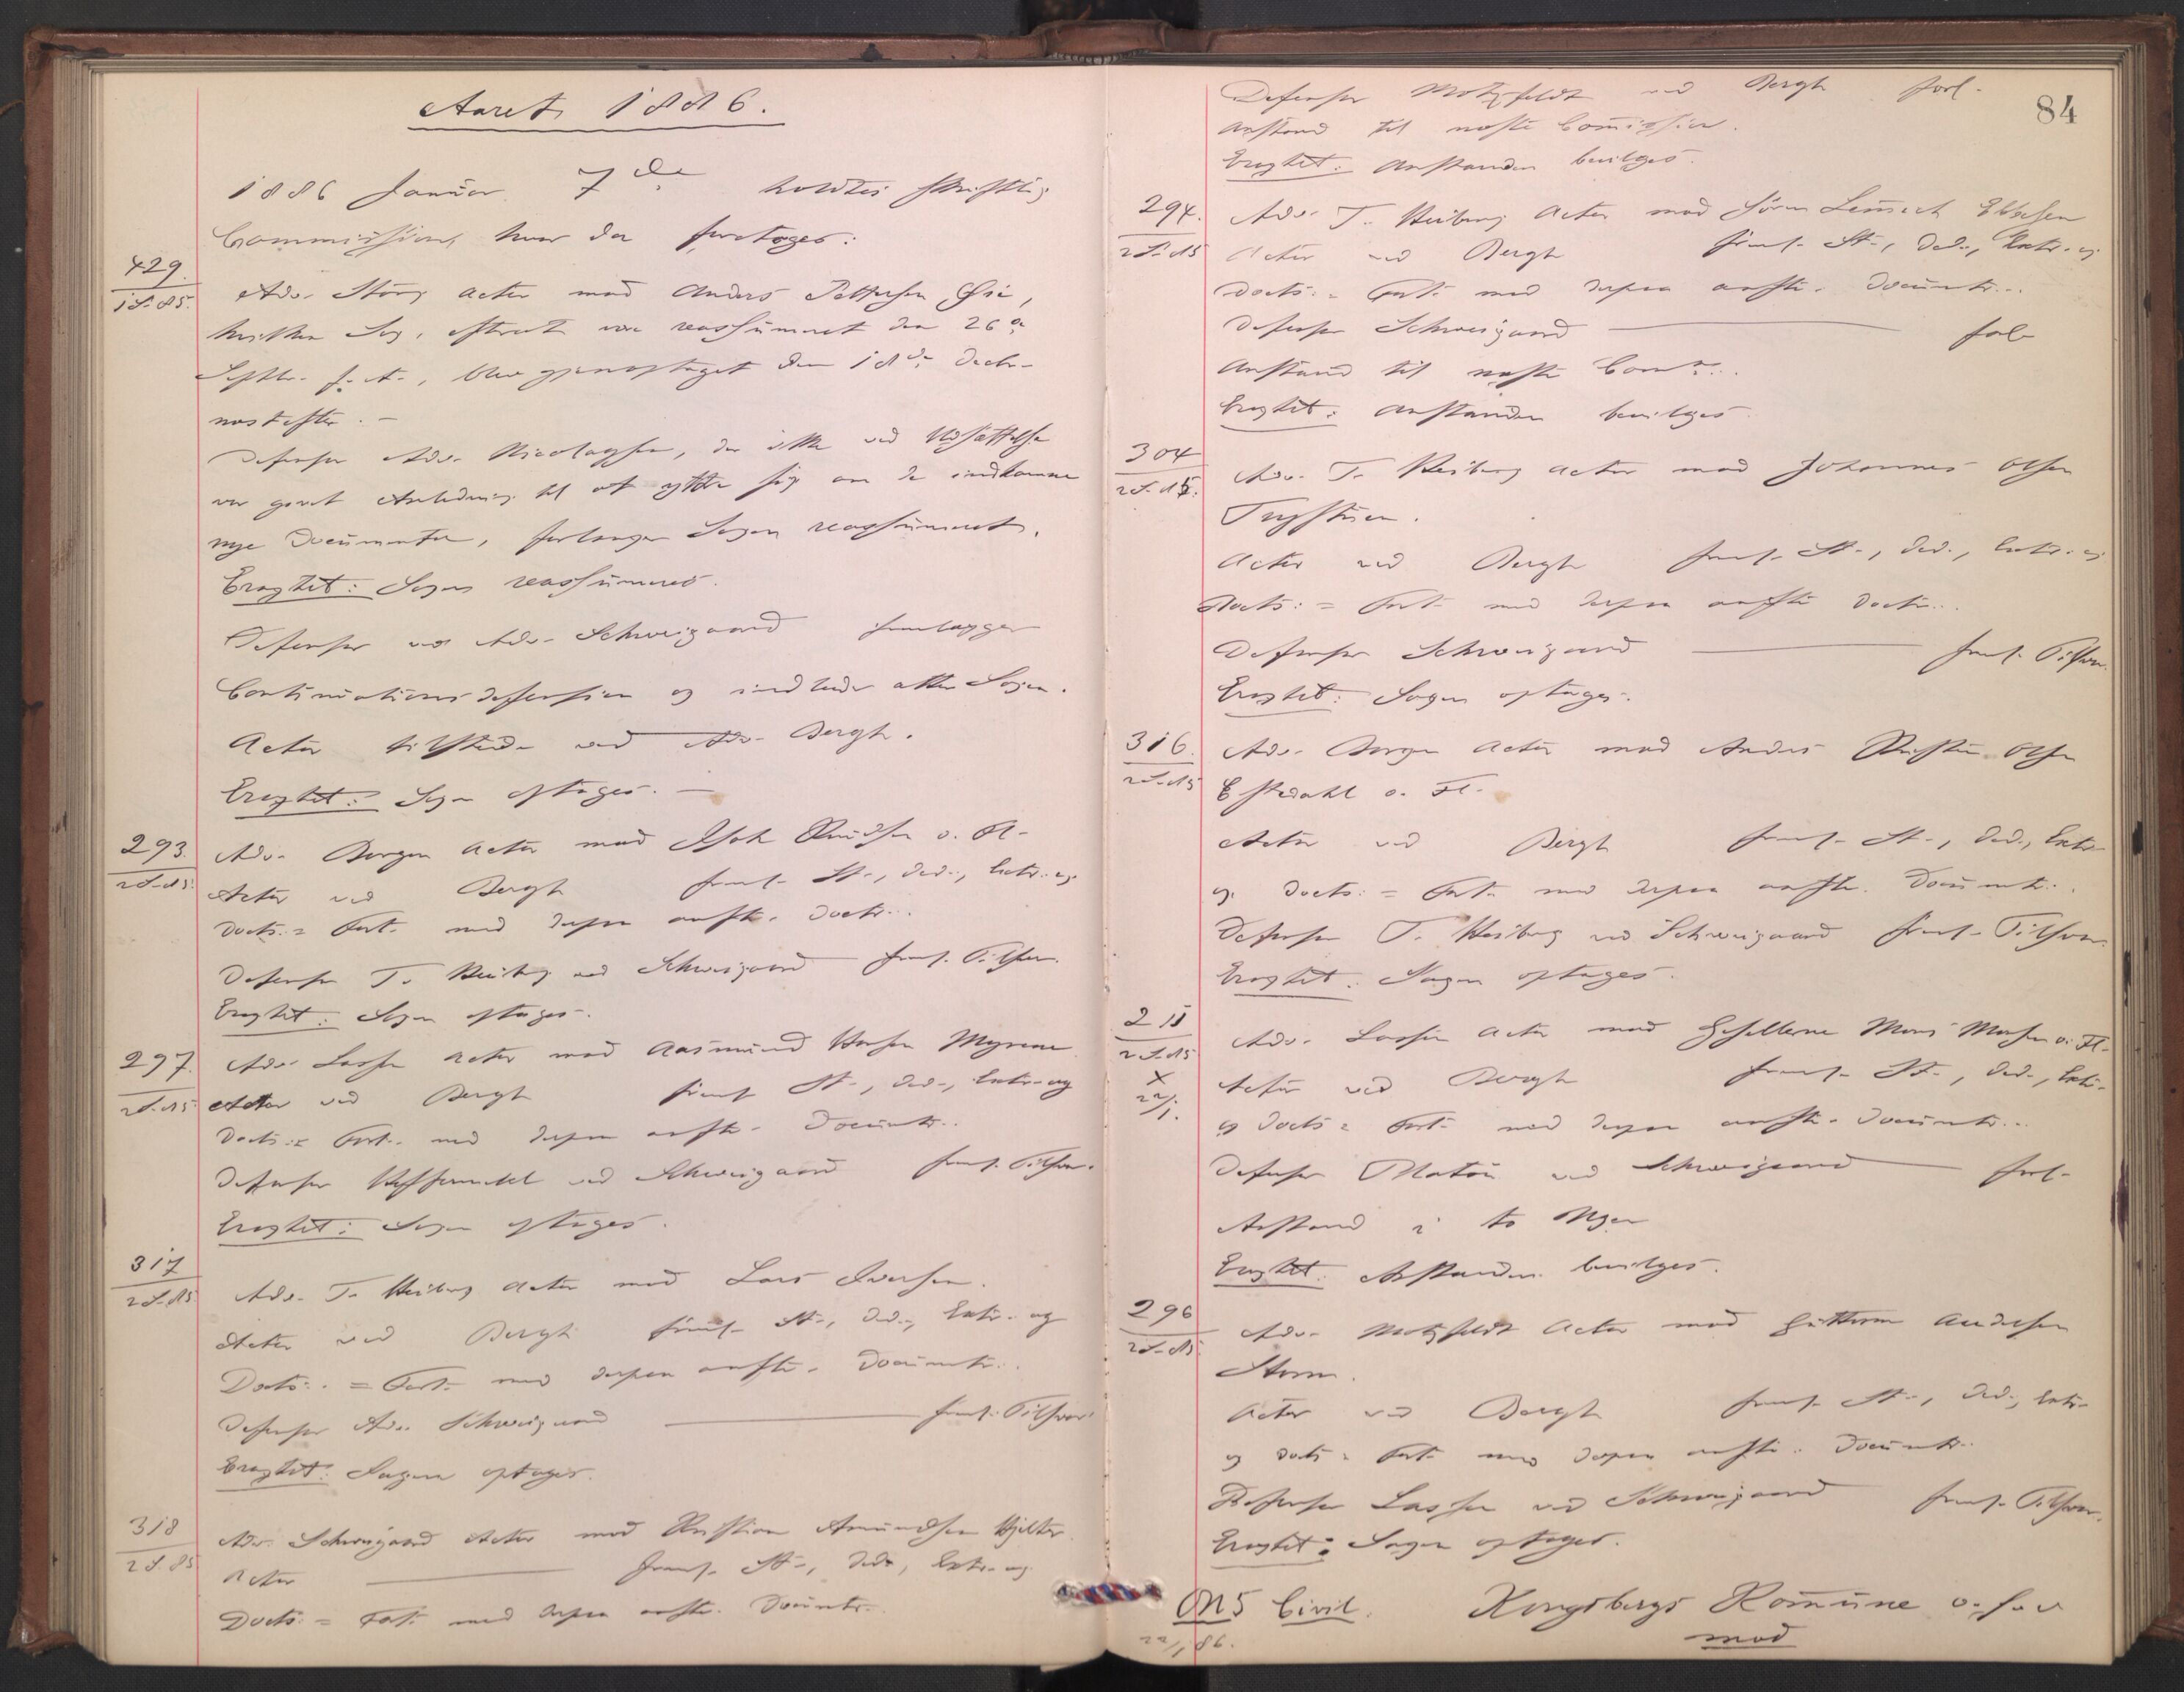 Aaret 1886.
1886 Januar 7de holdtes skriftlig
Commission, hvor da foretoges:
429.
1 S. 85.
Adv. Stang Actor mod Anders Pettersen
hvilken Sag, efterat være reassumeret den 26de
Septbr. f. A., blev gjenoptaget den 18de Decbr.
næstefter. -
Defensor Adv. Nicolaysen, der ikke ved Udsættelse
var givet Anledning til at yttre sig om de indkomne
nye Documenter, forlanger Sagen reassumeret.
Eragtet: Sagen reassumeres.
Defensor ved Adv. Schweigaard fremlægger
Continuationsdefension og indlader atter Sagen.
Actor tilstede ved Adv. Bergh.
Eragtet: Sagen optages. -
293.
2 S. 85.
Adv. Bergen Actor mod Knudsen o. Fl.
Actor ved Bergh freml. St., Ded., Extr. og
Docts. = Fort. med derpaa anførte Docts.
Defensor T. Heiberg ved Schweigaard freml. Tilsvar.
Eragtet: Sagen optages.
297.
2 S. 85
Adv. Lasson Actor mod Aasmund Hansen Myrene
Actor ved Bergh freml. St., Ded., Extr. og
Docts. = Fort. med derpaa anførte Documtr.
Defensor ved Schweigaard freml. Tilsvar.
Eragtet: Sagen optages.
317
2 S. 85
Adv. T. Heiberg Actor mod Lars Iversen.
Actor ved Bergh freml. St., Ded., Extr. og
Docts. = Fort. med derpaa anførte Documtr.
Defensor Adv. Schweigaard freml. Tilsvar
Eragtet: Sagen optages.
318
2 S. 85
Adv. Schweigaard Actor mod Kristian Amundsen
Actor freml. St., Ded., Extr. og
Docts. = Fort. med derpaa anførte Documtr.
84
Defensor Motzfeldt ved Bergh forl.
Anstand til næste Commission.
Eragtet: Anstanden bevilges.
294.
2 S. 85
Adv. T. Heiberg Actor mod Søren Lemmech Ebbesen
Actor ved Bergh freml. St., Ded., Extr. og
Docts. = Fort. med derpaa anførte Documtr.
Defensor Schweigaard forl.
Anstand til næste Comm.
Eragtet: Anstanden bevilges.
304
2 S. 85.
Adv. T. Heiberg Actor mod Johannes Olsen
Actor ved Bergh freml. St., Ded., Extr. og
Docts: = Fort. med derpaa anførte Docts.
Defensor Schweigaard freml. Tilsvar.
Eragtet: Sagen optages.
316.
2 S. 85
Adv. Bergen Actor mod Anders Olsen
o. Fl.
Actor ved Bergh freml. St., Ded., Extr.
og Docts: = Fort. med derpaa anførte Documtr.
Defensor T. Heiberg ved Schweigaard freml. Tilsvar.
Eragtet: Sagen optages.
211
2 S. 85
X
22/1.
Adv. Lasson Actor mod Gesellerne Mons Monsen o. Fl.
Actor ved Bergh freml. St., Ded., Extr.
og Docts = Fort. med derpaa anførte Documtr.
Defensor Platou ved Schweigaard forl.
Anstand i to Uger
Eragtet: Anstanden bevilges.
296
2 S. 85.
Adv. Motzfeldt Actor mod Guttorm Andersen
Storm.
Actor ved Bergh freml. St., Ded., Extr.
og Docts = Fort. med derpaa anførte Documtr.
Defensor Lasson ved Schweigaard freml. Tilsvar.
Eragtet: Sagen optages.
No 5 Civil. Kongsbergs Kommune o. s. v
22/1 86. mod